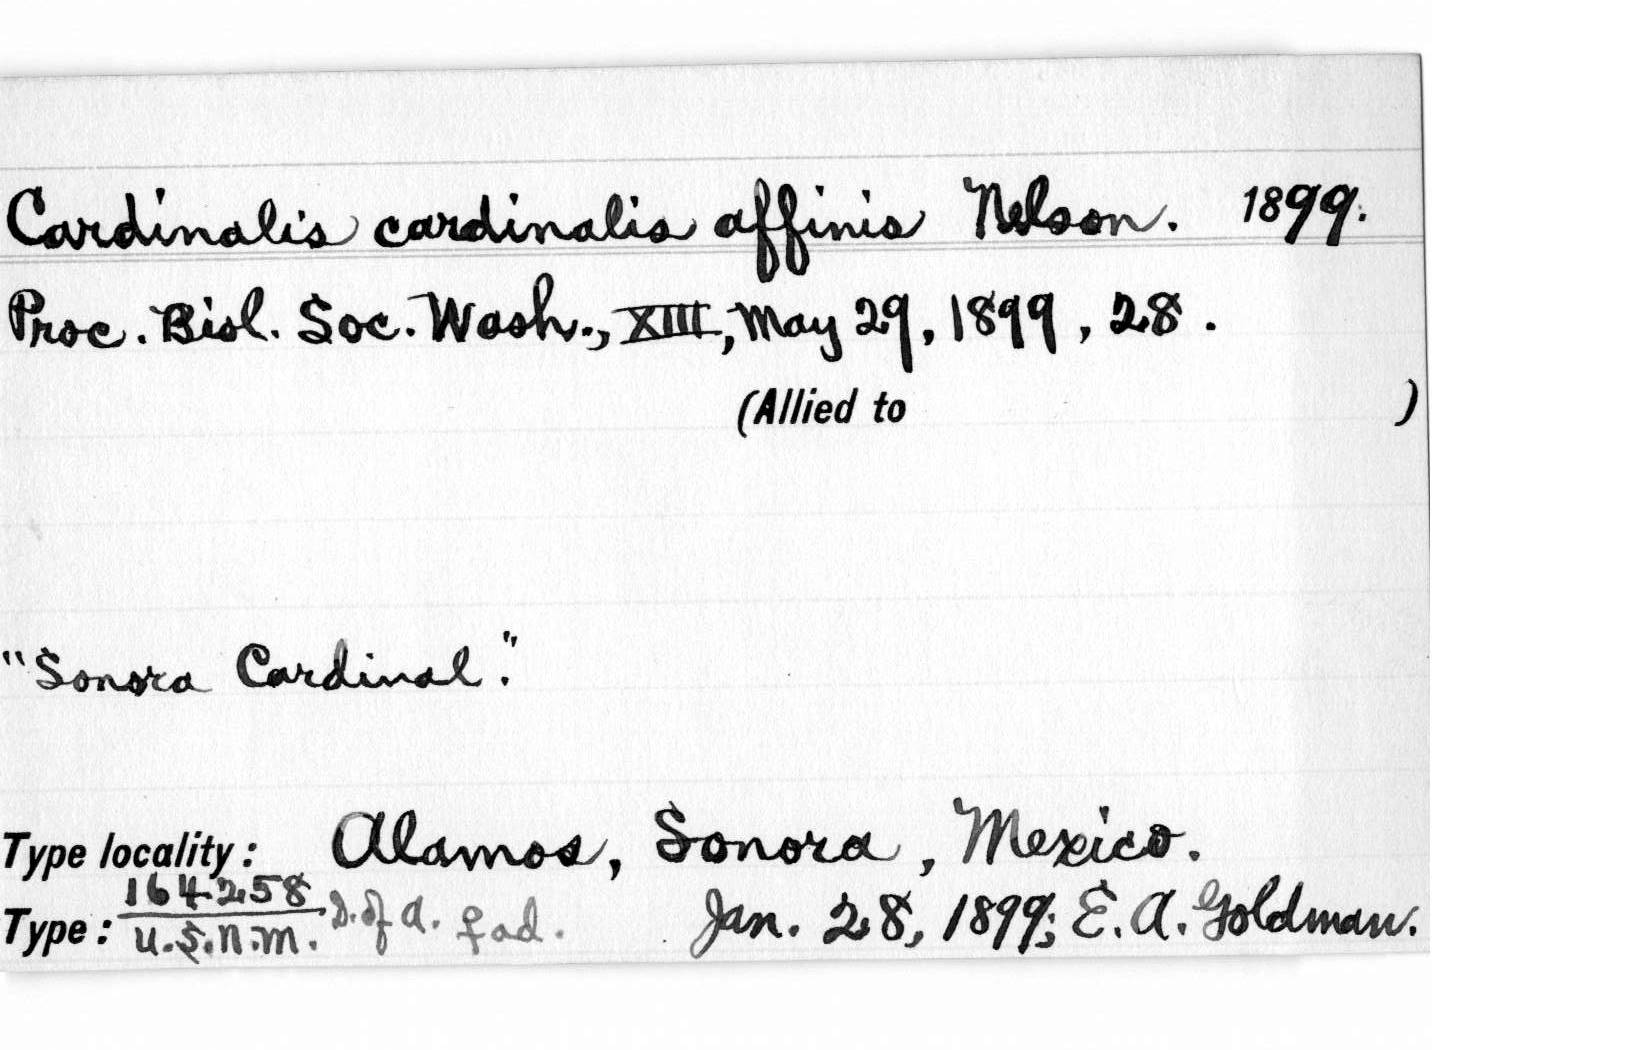 Cardinalis cardinalis affinis Nelson. 1899.
Proc. Biol. Soc. Wash., XIII, May 29, 1899, 28.
(Allied to )
"Sonora Cardinal."
Type locality: Alamos, Sonora, Mexico.
Type: 164258 / U.S.N.M. D. of A. ♀ ad. Jan. 28, 1899; E. A. Goldman.